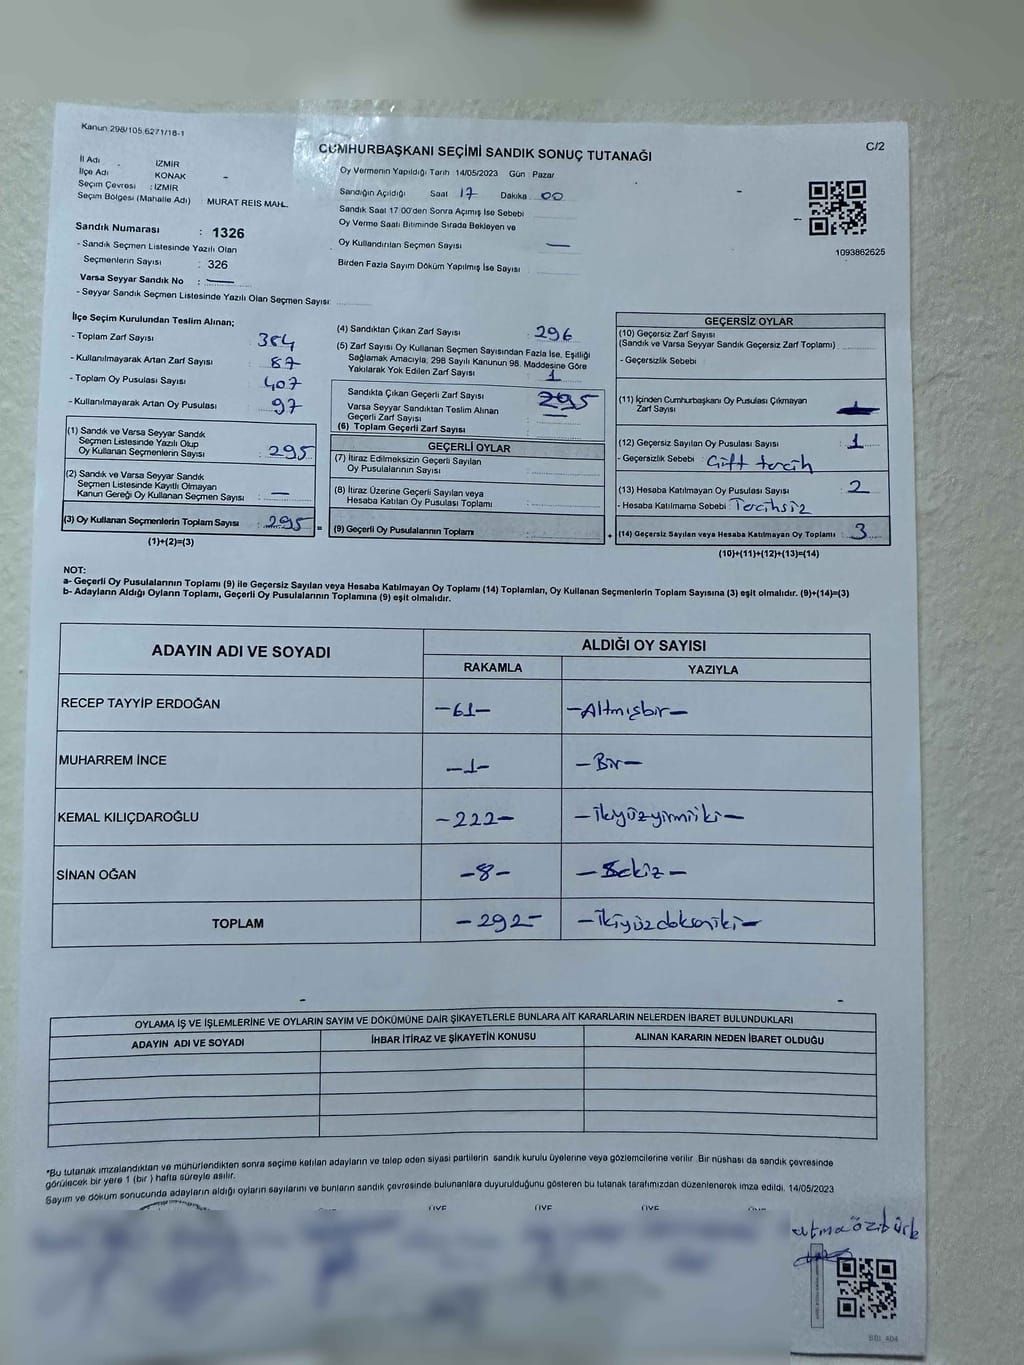 Kanun:298/105.6271/18-1
C/2
CUMHURBAŞKANI SEÇİMİ SANDIK SONUÇ TUTANAĞI
İl Adı : İZMİR
İlçe Adı KONAK
Seçim Çevresi : İZMİR
Seçim Bölgesi (Mahalle Adı) MURAT REİS MAH.
Sandık Numarası : 1326
- Sandık Seçmen Listesinde Yazılı Olan
Seçmenlerin Sayısı : 326
Varsa Seyyar Sandık No : —
- Seyyar Sandık Seçmen Listesinde Yazılı Olan Seçmen Sayısı:
Oy Vermenin Yapıldığı Tarih 14/05/2023 Gün : Pazar
Sandığın Açıldığı Saat 17 Dakika 00
Sandık Saat 17:00'den Sonra Açımış İse Sebebi
Oy Verme Saati Bitiminde Sırada Bekleyen ve
Oy Kullandırılan Seçmen Sayısı —
Birden Fazla Sayım Döküm Yapılmış İse Sayısı
1093862625
İlçe Seçim Kurulundan Teslim Alınan;
- Toplam Zarf Sayısı : 384
- Kullanılmayarak Artan Zarf Sayısı : 87
- Toplam Oy Pusulası Sayısı : 407
- Kullanılmayarak Artan Oy Pusulası : 97
(1) Sandık ve Varsa Seyyar Sandık
Seçmen Listesinde Yazılı Olup
Oy Kullanan Seçmenlerin Sayısı : 295
(2) Sandık ve Varsa Seyyar Sandık
Seçmen Listesinde Kayıtlı Olmayan
Kanun Gereği Oy Kullanan Seçmen Sayısı : —
(3) Oy Kullanan Seçmenlerin Toplam Sayısı : 295
(1)+(2)=(3)
(4) Sandıktan Çıkan Zarf Sayısı : 296
(5) Zarf Sayısı Oy Kullanan Seçmen Sayısından Fazla İse, Eşitliği
Sağlamak Amacıyla, 298 Sayılı Kanunun 98. Maddesine Göre
Yakılarak Yok Edilen Zarf Sayısı : 1
Sandıkta Çıkan Geçerli Zarf Sayısı 295
Varsa Seyyar Sandıktan Teslim Alınan
Geçerli Zarf Sayısı : —
(6) Toplam Geçerli Zarf Sayısı :
GEÇERLİ OYLAR
(7) İtiraz Edilmeksizin Geçerli Sayılan
Oy Pusulalarının Sayısı :
(8) İtiraz Üzerine Geçerli Sayılan veya
Hesaba Katılan Oy Pusulası Toplamı :
(9) Geçerli Oy Pusulalarının Toplamı :
GEÇERSİZ OYLAR
(10) Geçersiz Zarf Sayısı
(Sandık ve Varsa Seyyar Sandık Geçersiz Zarf Toplamı)
- Geçersizlik Sebebi :
(11) İçinden Cumhurbaşkanı Oy Pusulası Çıkmayan
Zarf Sayısı
(12) Geçersiz Sayılan Oy Pusulası Sayısı : 1
- Geçersizlik Sebebi : Çift tercih
(13) Hesaba Katılmayan Oy Pusulası Sayısı : 2
- Hesaba Katılmama Sebebi : Tercihsiz
(14) Geçersiz Sayılan veya Hesaba Katılmayan Oy Toplamı : 3
(10)+(11)+(12)+(13)=(14)
NOT:
a- Geçerli Oy Pusulalarının Toplamı (9) ile Geçersiz Sayılan veya Hesaba Katılmayan Oy Toplamı (14) Toplamları, Oy Kullanan Seçmenlerin Toplam Sayısına (3) eşit olmalıdır. (9)+(14)=(3)
b- Adayların Aldığı Oyların Toplamı, Geçerli Oy Pusulalarının Toplamına (9) eşit olmalıdır.
ADAYIN ADI VE SOYADI
ALDIĞI OY SAYISI
RAKAMLA YAZIYLA
RECEP TAYYİP ERDOĞAN -61- -Altmışbir-
MUHARREM İNCE -1- -Bir-
KEMAL KILIÇDAROĞLU -222- -İkiyüzyirmiiki-
SİNAN OĞAN -8- -Sekiz-
TOPLAM -292- -İkiyüzdoksaniki-
OYLAMA İŞ VE İŞLEMLERİNE VE OYLARIN SAYIM VE DÖKÜMÜNE DAİR ŞİKAYETLERLE BUNLARA AİT KARARLARIN NELERDEN İBARET BULUNDUKLARI
ADAYIN ADI VE SOYADI İHBAR İTİRAZ VE ŞİKAYETİN KONUSU ALINAN KARARIN NEDEN İBARET OLDUĞU
*Bu tutanak imzalandıktan ve mühürlendikten sonra seçime katılan adayların ve talep eden siyasi partilerin sandık kurulu üyelerine veya gözlemcilerine verilir. Bir nüshası da sandık çevresinde
görülecek bir yere 1 (bir ) hafta süreyle asılır.
Sayım ve döküm sonucunda adayların aldığı oyların sayılarını ve bunların sandık çevresinde bulunanlara duyurulduğunu gösteren bu tutanak tarafımızdan düzenlenerek imza edildi. 14/05/2023
ÜYE ÜYE ÜYE
atmaöztürk